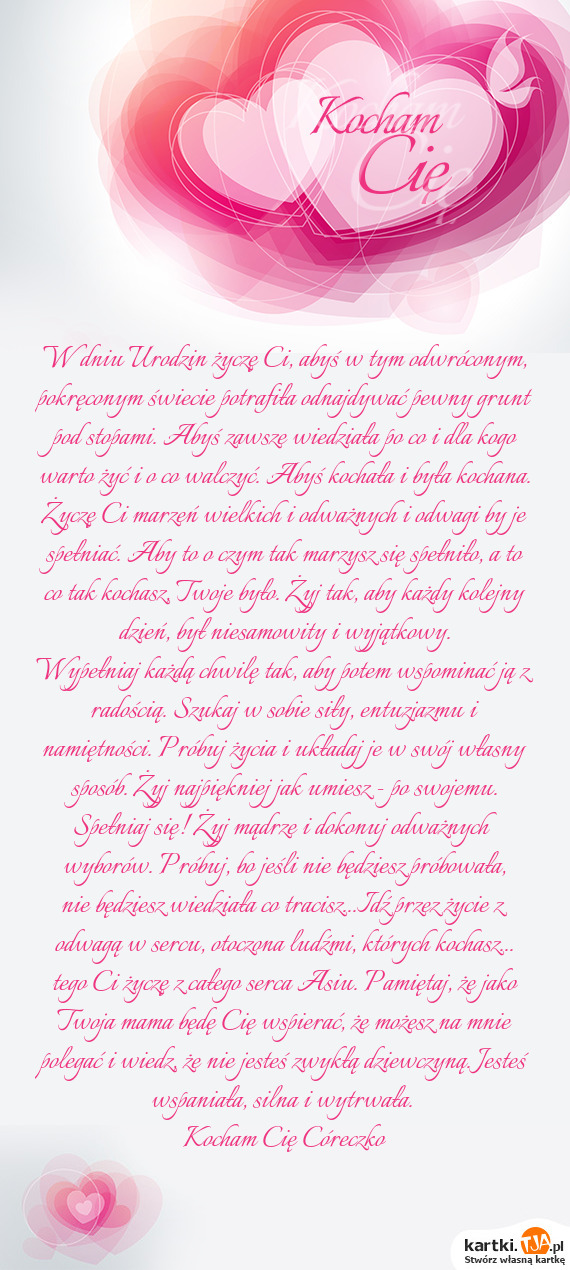 Kocham
Cię
W dniu Urodzin życzę Ci, abyś w tym odwróconym,
pokręconym świecie potrafiła odnajdywać pewny grunt
pod stopami. Abyś zawsze wiedziała po co i dla kogo
warto żyć i o co walczyć. Abyś kochała i była kochana.
Życzę Ci marzeń wielkich i odważnych i odwagi by je
spełniać. Aby to o czym tak marzysz się spełniło, a to
co tak kochasz, Twoje było. Żyj tak, aby każdy kolejny
dzień, był niesamowity i wyjątkowy.
Wypełniaj każdą chwilę tak, aby potem wspominać ją z
radością. Szukaj w sobie siły, entuzjazmu i
namiętności. Próbuj życia i układaj je w swój własny
sposób. Żyj najpiękniej jak umiesz - po swojemu.
Spełniaj się! Żyj mądrze i dokonuj odważnych
wyborów. Próbuj, bo jeśli nie będziesz próbowała,
nie będziesz wiedziała co tracisz...Idź przez życie z
odwagą w sercu, otoczona ludźmi, których kochasz...
tego Ci życzę z całego serca Asiu. Pamiętaj, że jako
Twoja mama będę Cię wspierać, że możesz na mnie
polegać i wiedz, że nie jesteś zwykłą dziewczyną. Jesteś
wspaniała, silna i wytrwała.
Kocham Cię Córeczko
kartki.TJA.pl
Stwórz własną kartkę